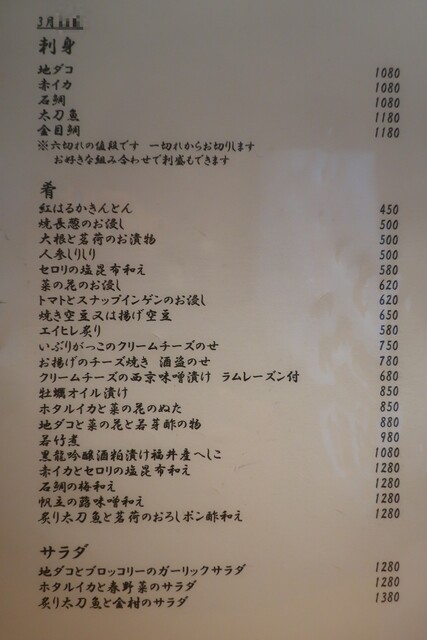 3月
刺身
地ダコ 1080
赤イカ 1080
石鯛 1080
太刀魚 1180
金目鯛 1180
※六切れの値段です 一切れからお切りします
お好きな組み合わせで刺盛もできます
肴
紅はるかきんとん 450
焼長葱のお浸し 500
大根と茗荷のお漬物 500
人参しりしり 500
セロリの塩昆布和え 580
菜の花のお浸し 620
トマトとスナップインゲンのお浸し 620
焼き空豆又は揚げ空豆 650
エイヒレ炙り 580
いぶりがっこのクリームチーズのせ 750
お揚げのチーズ焼き 酒盗のせ 780
クリームチーズの西京味噌漬け ラムレーズン付 680
牡蠣オイル漬け 850
ホタルイカと菜の花のぬた 850
地ダコと菜の花と若芽酢の物 880
若竹煮 980
黒龍吟醸酒粕漬け福井産へしこ 1080
赤イカとセロリの塩昆布和え 1280
石鯛の梅和え 1280
帆立の蕗味噌和え 1280
炙り太刀魚と茗荷のおろしポン酢和え 1280
サラダ
地ダコとブロッコリーのガーリックサラダ 1280
ホタルイカと春野菜のサラダ 1280
炙り太刀魚と金柑のサラダ 1380